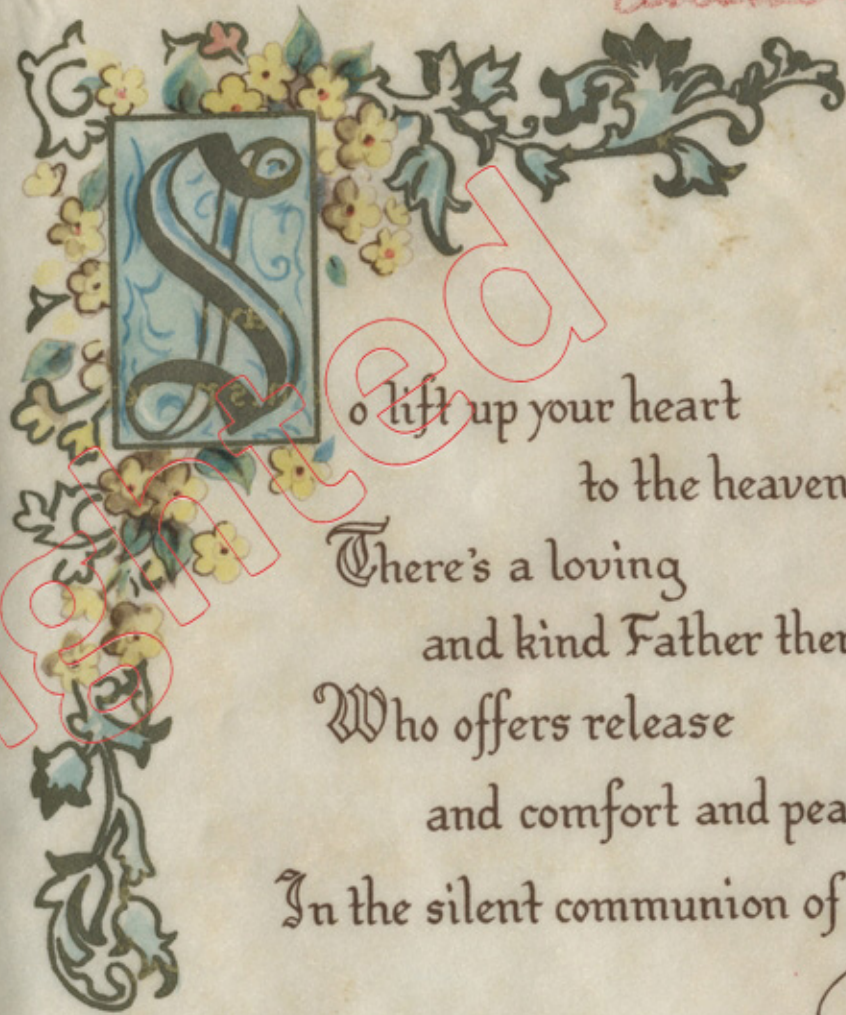 So lift up your heart
to the heaven
There's a loving
and kind Father ther
Who offers release
and comfort and pea
In the silent communion of
ghted